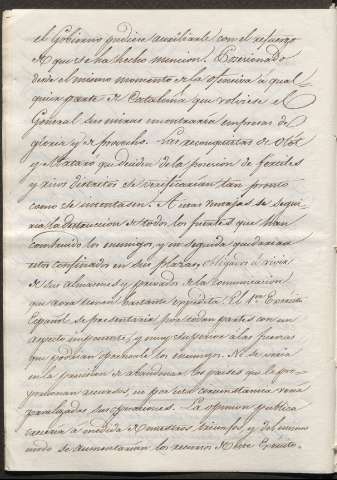 el Gobierno pudiera auxiliarle con el refuerzo
de que se ha hecho mencion. Posesionado
desde el mismo momento de la ofensiva á qual-
quiera parte de Cataluña que volviese el
General sus miras encontraria empresas de
gloria y de provecho. Las reconquistas de Olót
y Mataro que deciden de la posesion de fertiles
y ricos distritos se verificarian tan pronto
como se intentasen. A estas ventajas se segui-
ria la destruccion de todos los fuertes que han
construido los enemigos, y en seguida quedarian
estos confinados en sus plazas, obligados á vivir
de sus almacenes y privados de la comunicacion
que aora tienen bastante expedita. El 1.er Exercito
Español se presentaria por todas partes con un
aspecto imponente, y muy superior á las fuerzas
que podrian oponerle los enemigos. No se veria
en la precision de abandonar los paises que le pro-
porcionan recursos, ni por esta circunstancia veria
paralizadas sus operaciones. La opinion publica
creceria á medida de nuestros triunfos, y del mismo
modo se aumentarian los recursos de este Exercito.